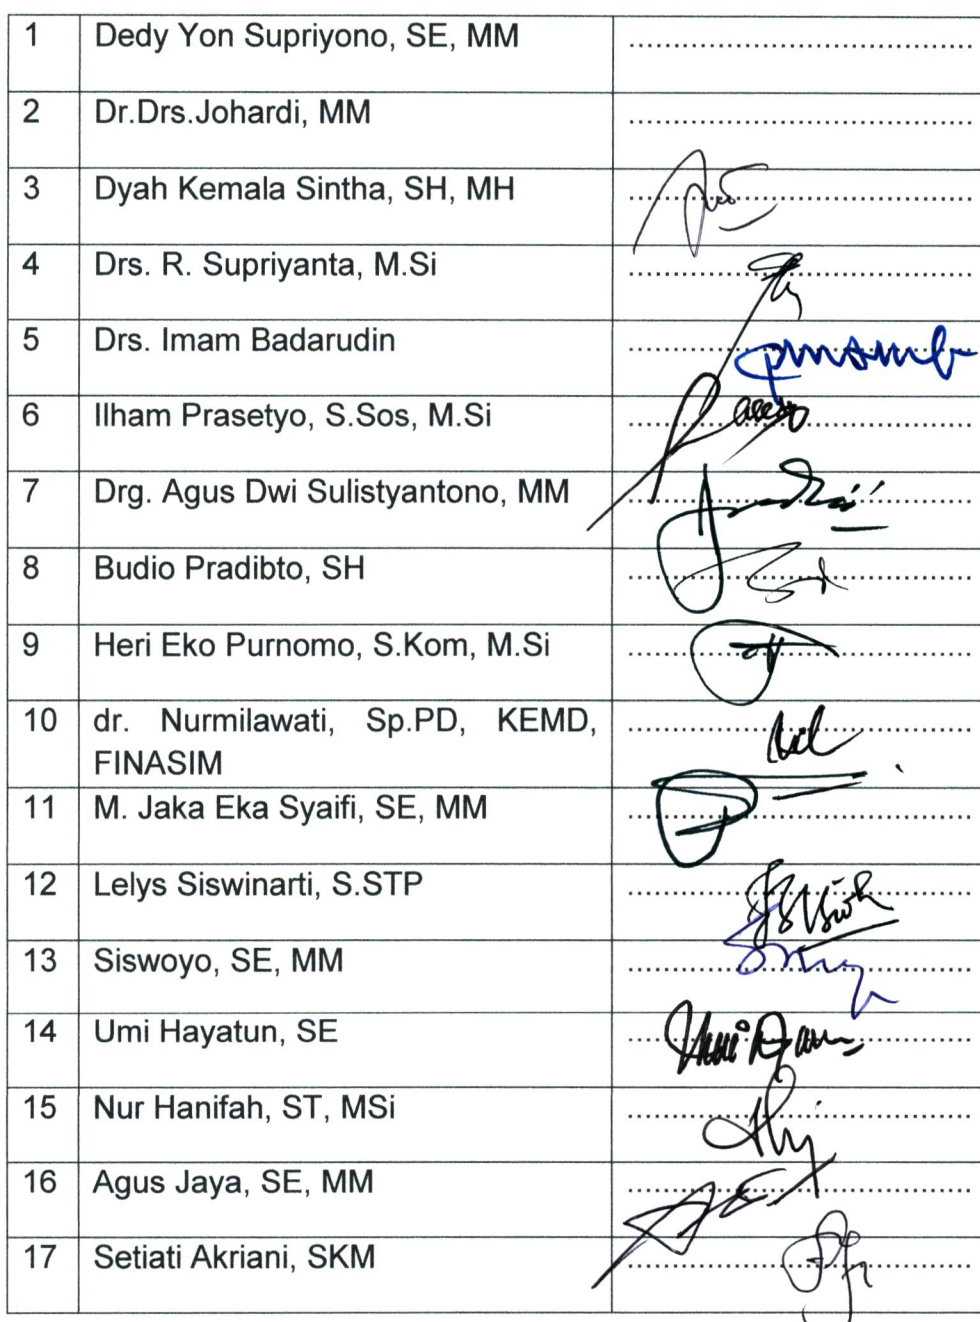 1 Dedy Yon Supriyono, SE, MM ......................................
2 Dr.Drs.Johardi, MM ......................................
3 Dyah Kemala Sintha, SH, MH ......................................
4 Drs. R. Supriyanta, M.Si ......................................
5 Drs. Imam Badarudin ......................................
6 Ilham Prasetyo, S.Sos, M.Si ......................................
7 Drg. Agus Dwi Sulistyantono, MM ......................................
8 Budio Pradibto, SH ......................................
9 Heri Eko Purnomo, S.Kom, M.Si ......................................
10 dr. Nurmilawati, Sp.PD, KEMD, ......................................
FINASIM
11 M. Jaka Eka Syaifi, SE, MM ......................................
12 Lelys Siswinarti, S.STP ......................................
13 Siswoyo, SE, MM ......................................
14 Umi Hayatun, SE ......................................
15 Nur Hanifah, ST, MSi ......................................
16 Agus Jaya, SE, MM ......................................
17 Setiati Akriani, SKM ......................................